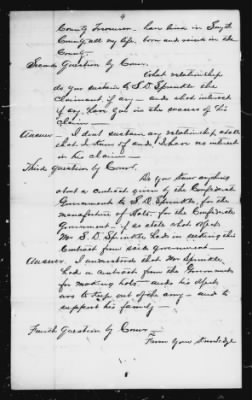 9
County Tennessee. have lived in Smyth
County all my life. born and raised in the
County.
Second Question by Coms.
What relationship
do you sustain to S. D. Sprinkle the
claimant if any — and what interest
if any have you in the success of his
claim —
Answer — I dont sustain any relationship at all
that I know of and I have no interest
in his claim —
Third Question by Coms.
Do you know anything
about a contract given by the Confederate
Government to S. D. Sprinkle for the
manufacture of Hats for the Confederate
Government — if so state what object
Mr. S. D. Sprinkle had in seeking the
Contract from said Government —
Answer. I understood that Mr Sprinkle
had a contract from the Government
for making hats — and his object
was to keep out of the army — and to
support his family —
Fourth Question by Coms —
From your knowledge